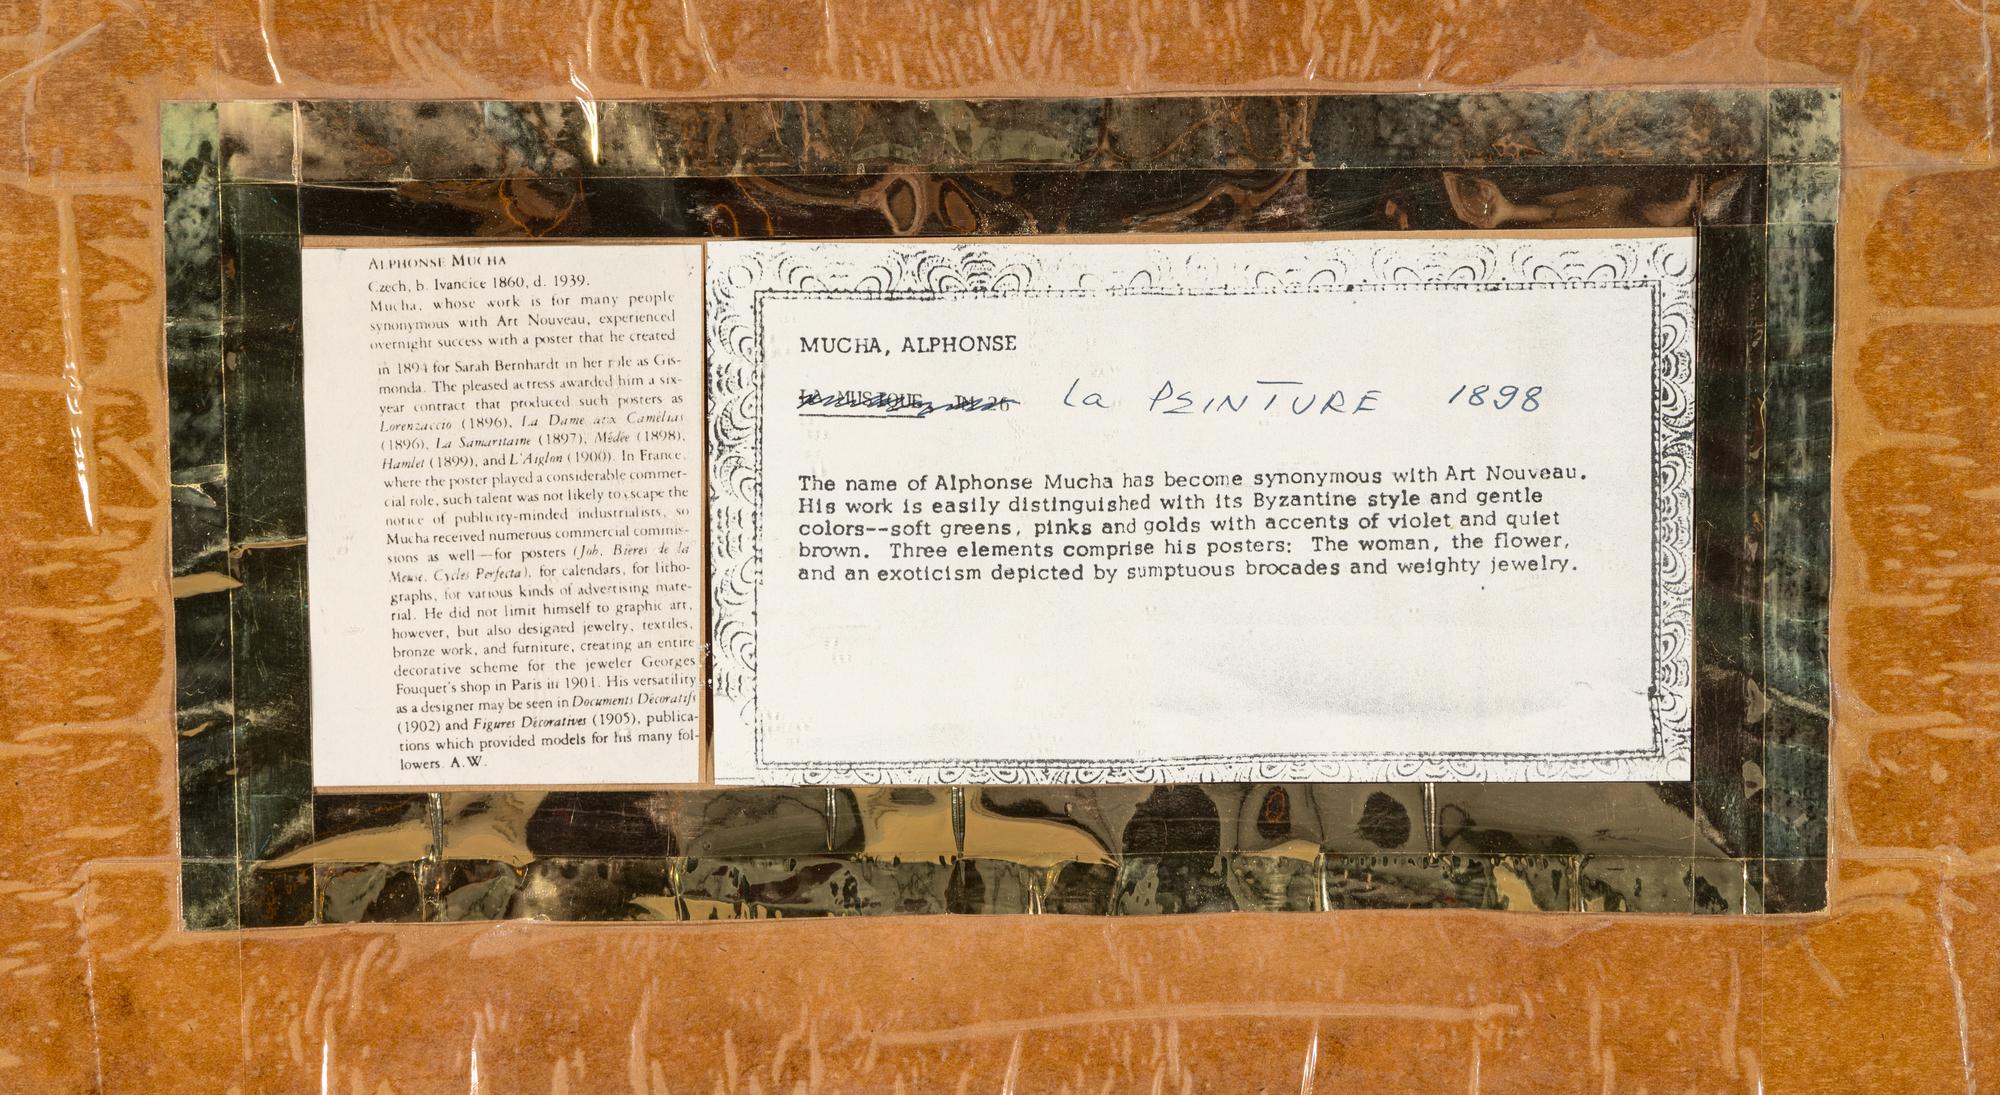 ALPHONSE MUCHA
Czech, b. Ivancice 1860, d. 1939.
Mucha, whose work is for many people
synonymous with Art Nouveau, experienced
overnight success with a poster that he created
in 1894 for Sarah Bernhardt in her role as Gis-
monda. The pleased actress awarded him a six-
year contract that produced such posters as
Lorenzaccio (1896), La Dame aux Camélias
(1896), La Samaritaine (1897), Médée (1898),
Hamlet (1899), and L'Aiglon (1900). In France,
where the poster played a considerable commer-
cial role, such talent was not likely to escape the
notice of publicity-minded industrialists, so
Mucha received numerous commercial commis-
sions as well—for posters (Job, Bières de la
Meuse, Cycles Perfecta), for calendars, for litho-
graphs, for various kinds of advertising mate-
rial. He did not limit himself to graphic art,
however, but also designed jewelry, textiles,
bronze work, and furniture, creating an entire
decorative scheme for the jeweler Georges
Fouquet's shop in Paris in 1901. His versatility
as a designer may be seen in Documents Décoratifs
(1902) and Figures Décoratives (1905), publica-
tions which provided models for his many fol-
lowers. A.W.
MUCHA, ALPHONSE
LA MUSIQUE, IN 26 La PEINTURE 1898
The name of Alphonse Mucha has become synonymous with Art Nouveau.
His work is easily distinguished with its Byzantine style and gentle
colors--soft greens, pinks and golds with accents of violet and quiet
brown. Three elements comprise his posters: The woman, the flower,
and an exoticism depicted by sumptuous brocades and weighty jewelry.